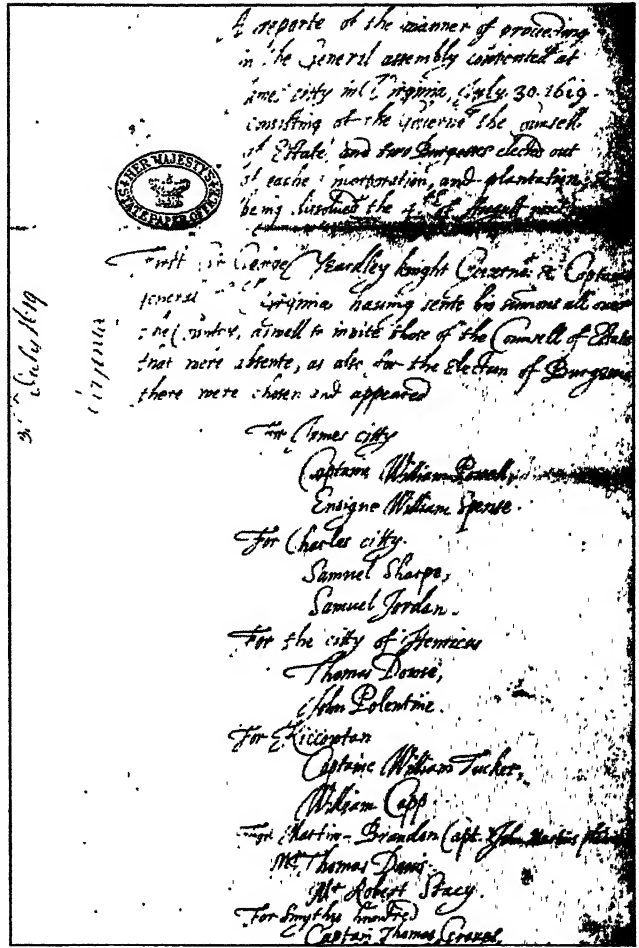 A reporte of the manner of proceeding
in the General assembly convented at
James citty in Virginia, July 30. 1619.
consisting of the Governor, the Counsell
of Estate, and two Burgesses elected out
of eache incorporation, and plantation,
being dissolved the 4th of August next
HER MAJESTY'S STATE PAPER OFFICE
First Sir George Yeardley knight Governor & Captaine
general of Virginia, having sente his sumons all over
the Country, aswell to invite those of the Counsell of Estate
that were absente, as also for the Election of Burgesses
there were chosen and appeared
July 1619
Virginia
For James citty
Captaine William Powell,
Ensigne William Spense.
For Charles citty.
Samuel Sharpe,
Samuel Jordan.
For the citty of Henricus
Thomas Dowse,
John Polentine.
For Kiccowtan
Captaine William Tucker,
William Capp.
For Martin-Brandon Capt. John Martins
Mr Thomas Davis.
Mr Robert Stacy.
For Smythes hundred
Captain Thomas Graves,